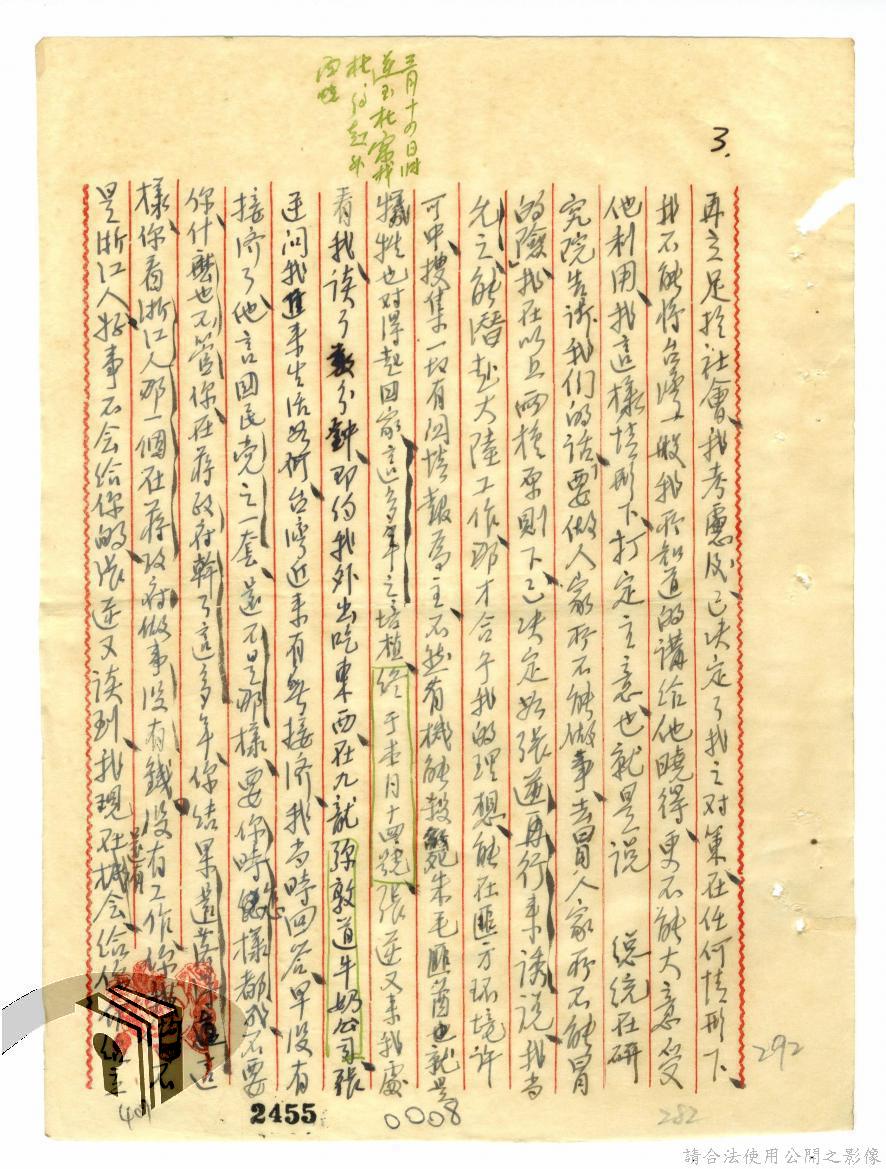 3.
三月十四日
再立足於社會、我考慮後已決定了我之對策、在任何情形下、
我不能將台灣一般我所知道的講給他曉得、更不能大意受
他利用、我這樣情形下打定主意、也就是說 總統在研
究院告訴我們的話「要做人家所不能做事、去冒人家所不能冒
的險」我在以上兩種原則下、已決定如張逆再行來誘說、我當
允之、能潛赴大陸工作、那才合乎我的理想、能在匪方環境許
可中、搜集一切有關情報為主、不然有機能殺死朱毛匪酋也就是
犧牲也對得起國家這多年之培植、終于本月十四號、張逆又來我處
看我、談了數分鐘、即約我外出吃東西、在九龍彌敦道牛奶公司、張
逆問我近來生活如何、台灣近來有無接濟、我當時回答早沒有
接濟了、他言國民党之一套還不是那樣、要你時怎樣都成、不要
你什麼也不管、你在蔣政府幹了這多年、你結果還
樣、你看浙江人那一個在蔣政府做事沒有錢沒有工作、你
是浙江人、好事不会給你的、張逆又談到、我現在還有機会給你
292
282
2455
0008
請合法使用公開之影像